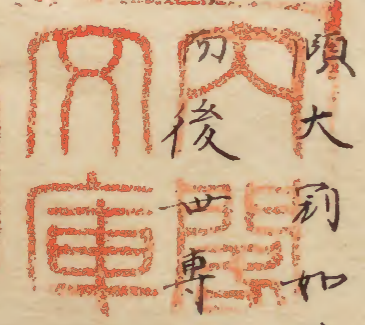 大別如
而後世專
内閣
文庫